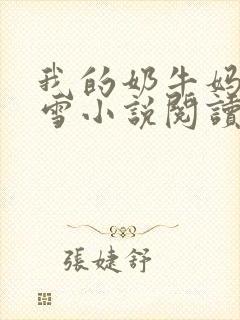 我的奶牛妈
雪小説閱讀
張婕舒